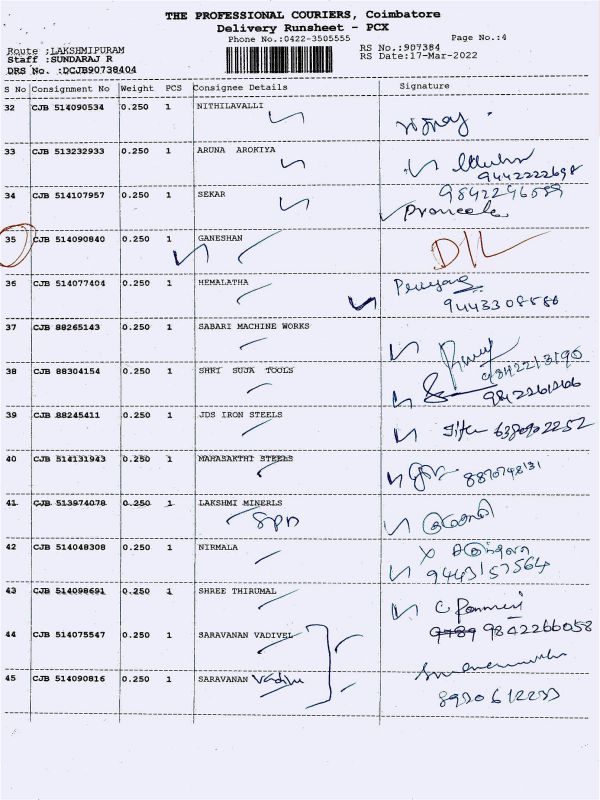 THE PROFESSIONAL COURIERS, Coimbatore
Delivery Runsheet - PCX
Phone No.:0422-3505555 Page No.:4
Route :LAKSHMIPURAM RS No.:907384
Staff :SUNDARAJ R RS Date:17-Mar-2022
DRS No. :DCJB90738404
S No Consignment No Weight PCS Consignee Details Signature
32 CJB 514090534 0.250 1 NITHILAVALLI
33 CJB 513232933 0.250 1 ARUNA AROKIYA
9442222698
34 CJB 514107957 0.250 1 SEKAR
Praneela
35 CJB 514090840 0.250 1 GANESHAN D/L
36 CJB 514077404 0.250 1 HEMALATHA
9443308586
37 CJB 88265143 0.250 1 SABARI MACHINE WORKS
9842213190
38 CJB 88304154 0.250 1 SHRI SUJA TOOLS
39 CJB 88245411 0.250 1 JDS IRON STEELS
6380902252
40 CJB 514131943 0.250 1 MAHASAKTHI STEELS
8870748131
41 CJB 513974078 0.250 1 LAKSHMI MINERLS
42 CJB 514048308 0.250 1 NIRMALA
9443157564
43 CJB 514098691 0.250 1 SHREE THIRUMAL
9842266058
44 CJB 514075547 0.250 1 SARAVANAN VADIVEL
45 CJB 514090816 0.250 1 SARAVANAN Vadivu